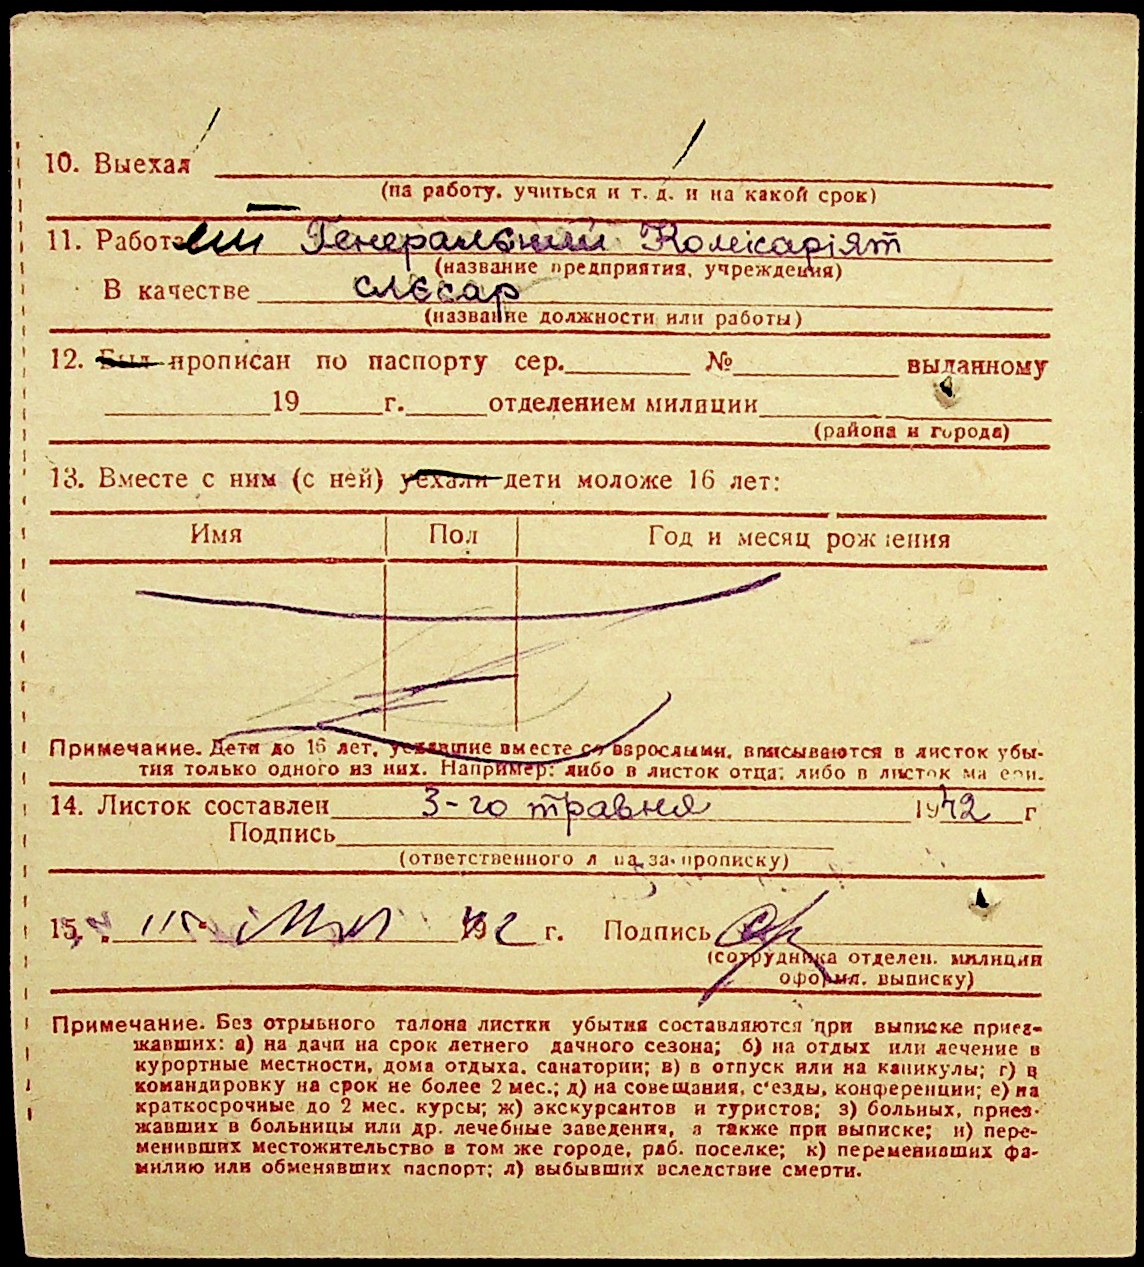 10. Выехал
(на работу, учиться и т. д. и на какой срок)
11. Работает Генеральний Комісаріят
(название предприятия, учреждения)
В качестве слєсар
(название должности или работы)
12. Был прописан по паспорту сер. № выданному
19 г. отделением милиции
(района и города)
13. Вместе с ним (с ней) уехали дети моложе 16 лет:
Имя Пол Год и месяц рождения
Примечание. Дети до 16 лет, уехавшие вместе со взрослыми, вписываются в листок убы-
тия только одного из них. Например: либо в листок отца, либо в листок матери.
14. Листок составлен 3-го травня 1942 г
Подпись
(ответственного лица за прописку)
15. 42 г. Подпись
(сотрудника отделен. милиции
оформл. выписку)
Примечание. Без отрывного талона листки убытия составляются при выписке приез-
жавших: а) на дачи на срок летнего дачного сезона; б) на отдых или лечение в
курортные местности, дома отдыха, санатории; в) в отпуск или на каникулы; г) в
командировку на срок не более 2 мес.; д) на совещания, с'езды, конференции; е) на
краткосрочные до 2 мес. курсы; ж) экскурсантов и туристов; з) больных, приез-
жавших в больницы или др. лечебные заведения, а также при выписке; и) пере-
менивших местожительство в том же городе, раб. поселке; к) переменивших фа-
милию или обменявших паспорт; л) выбывших вследствие смерти.